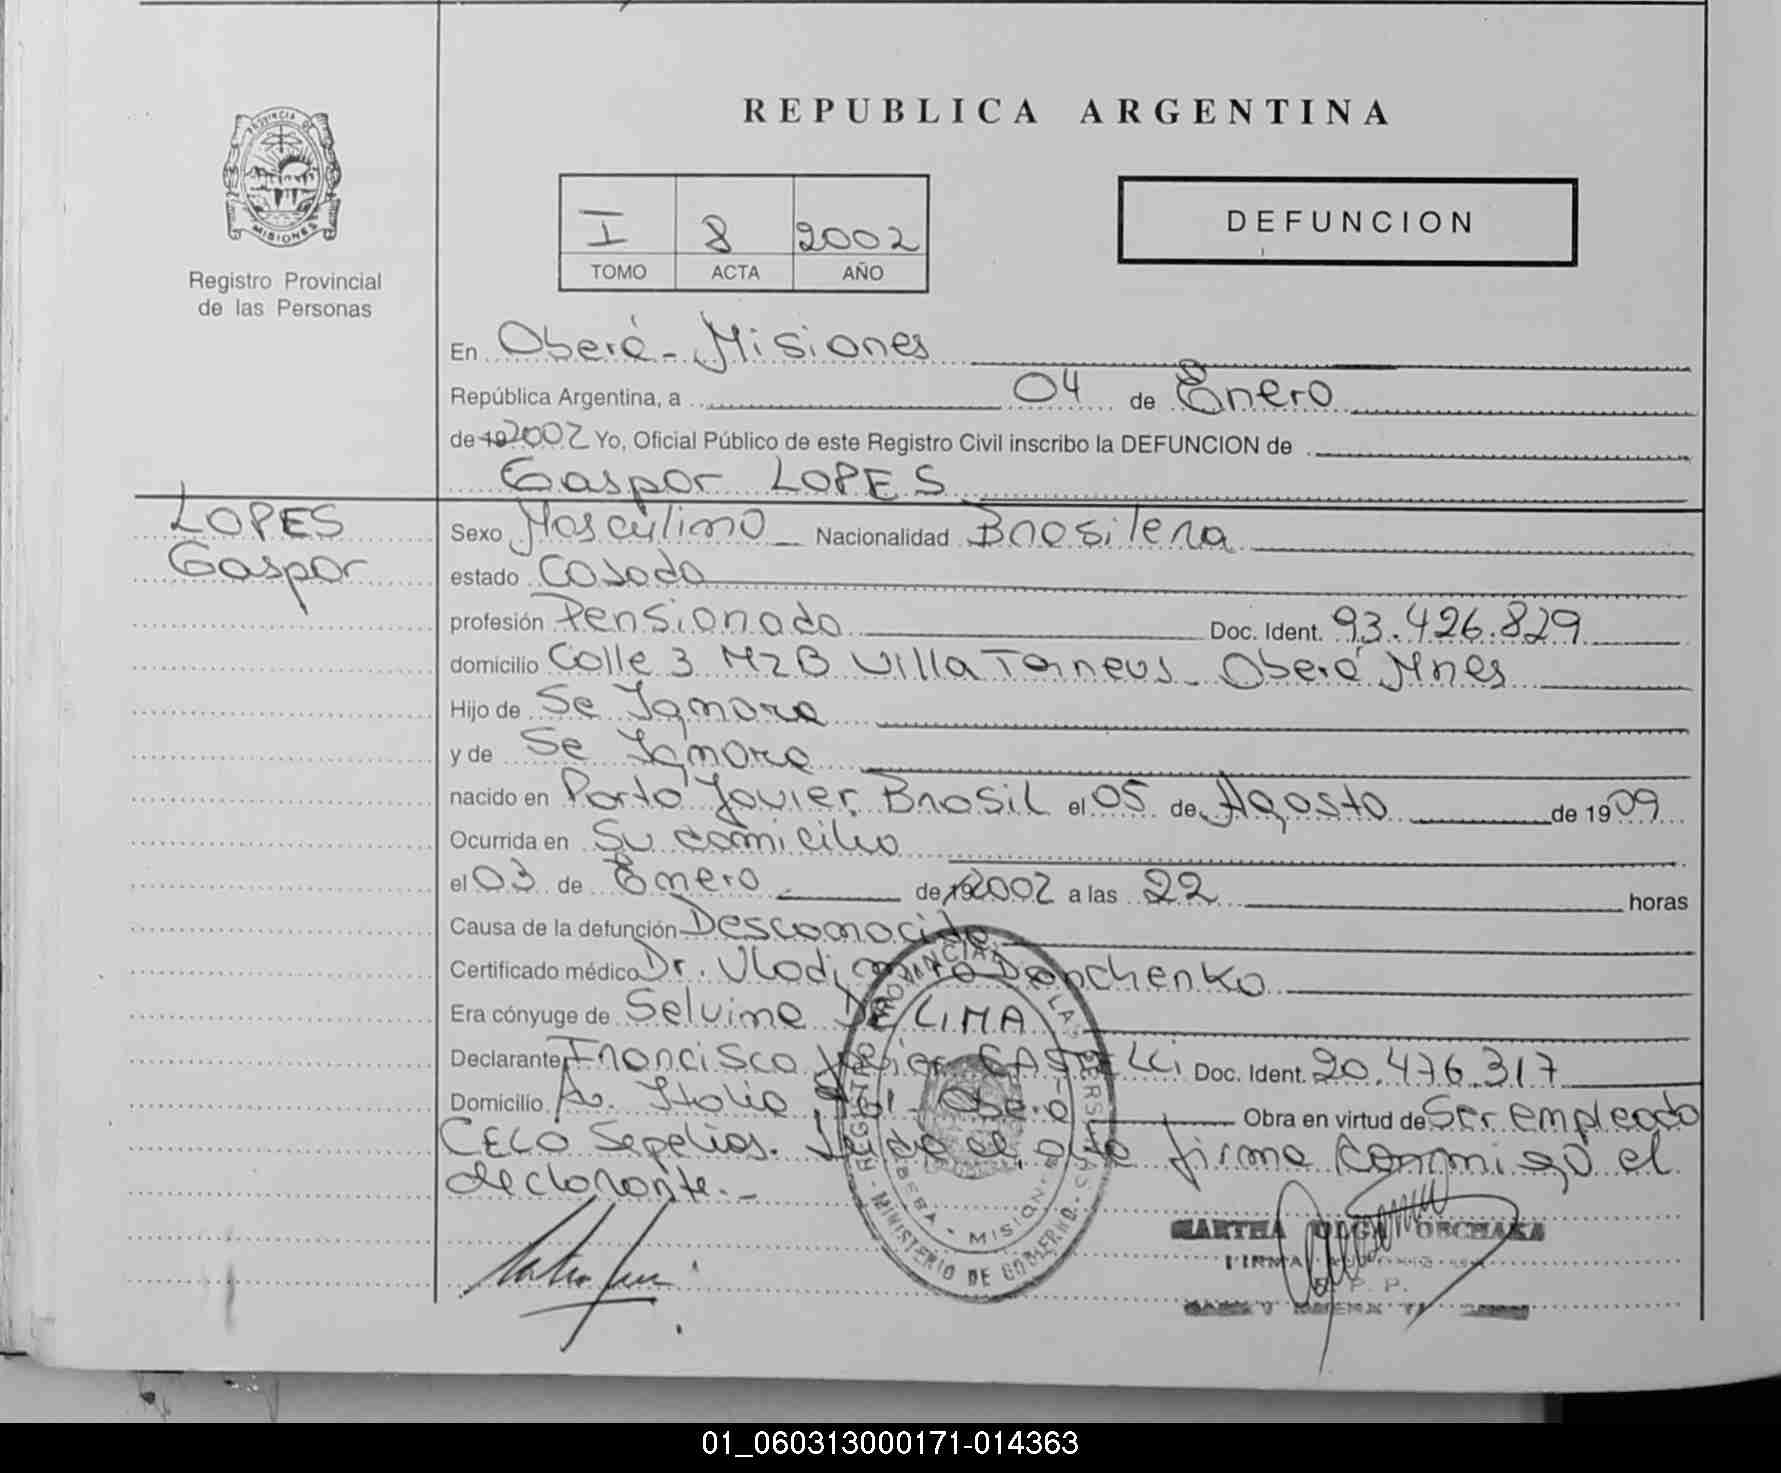 REPUBLICA ARGENTINA
PROVINCIA DE
MISIONES
Registro Provincial
de las Personas
I 8 2002
TOMO ACTA AÑO
DEFUNCION
En Oberá - Misiones
República Argentina, a 04 de Enero
de 19 2002 Yo, Oficial Público de este Registro Civil inscribo la DEFUNCION de
Gaspar LOPES
LOPES
Gaspar
Sexo Masculino Nacionalidad Brasilera
estado Casado
profesión Pensionado Doc. Ident. 93.426.829
domicilio Calle 3 MZ B Villa Torneus - Oberá Mnes
Hijo de Se Ignora
y de Se Ignora
nacido en Porto Javier Brasil el 05 de Agosto de 1909
Ocurrida en Su domicilio
el 03 de Enero de 19 2002 a las 22 horas
Causa de la defunción Desconocida
Certificado médico Dr. Vladimiro Donchenko
Era cónyuge de Selvina De LIMA
Declarante Francisco Javier CASTELLI Doc. Ident. 20.476.317
Domicilio Av. Italia - Oberá Obra en virtud de Ser empleado
CELO Sepelios. Leída el acta firma conmigo el
declarante.-
MINISTERIO DE GOBIERNO
MARTHA OLGA
FIRMA
R. P. P.
01_060313000171-014363